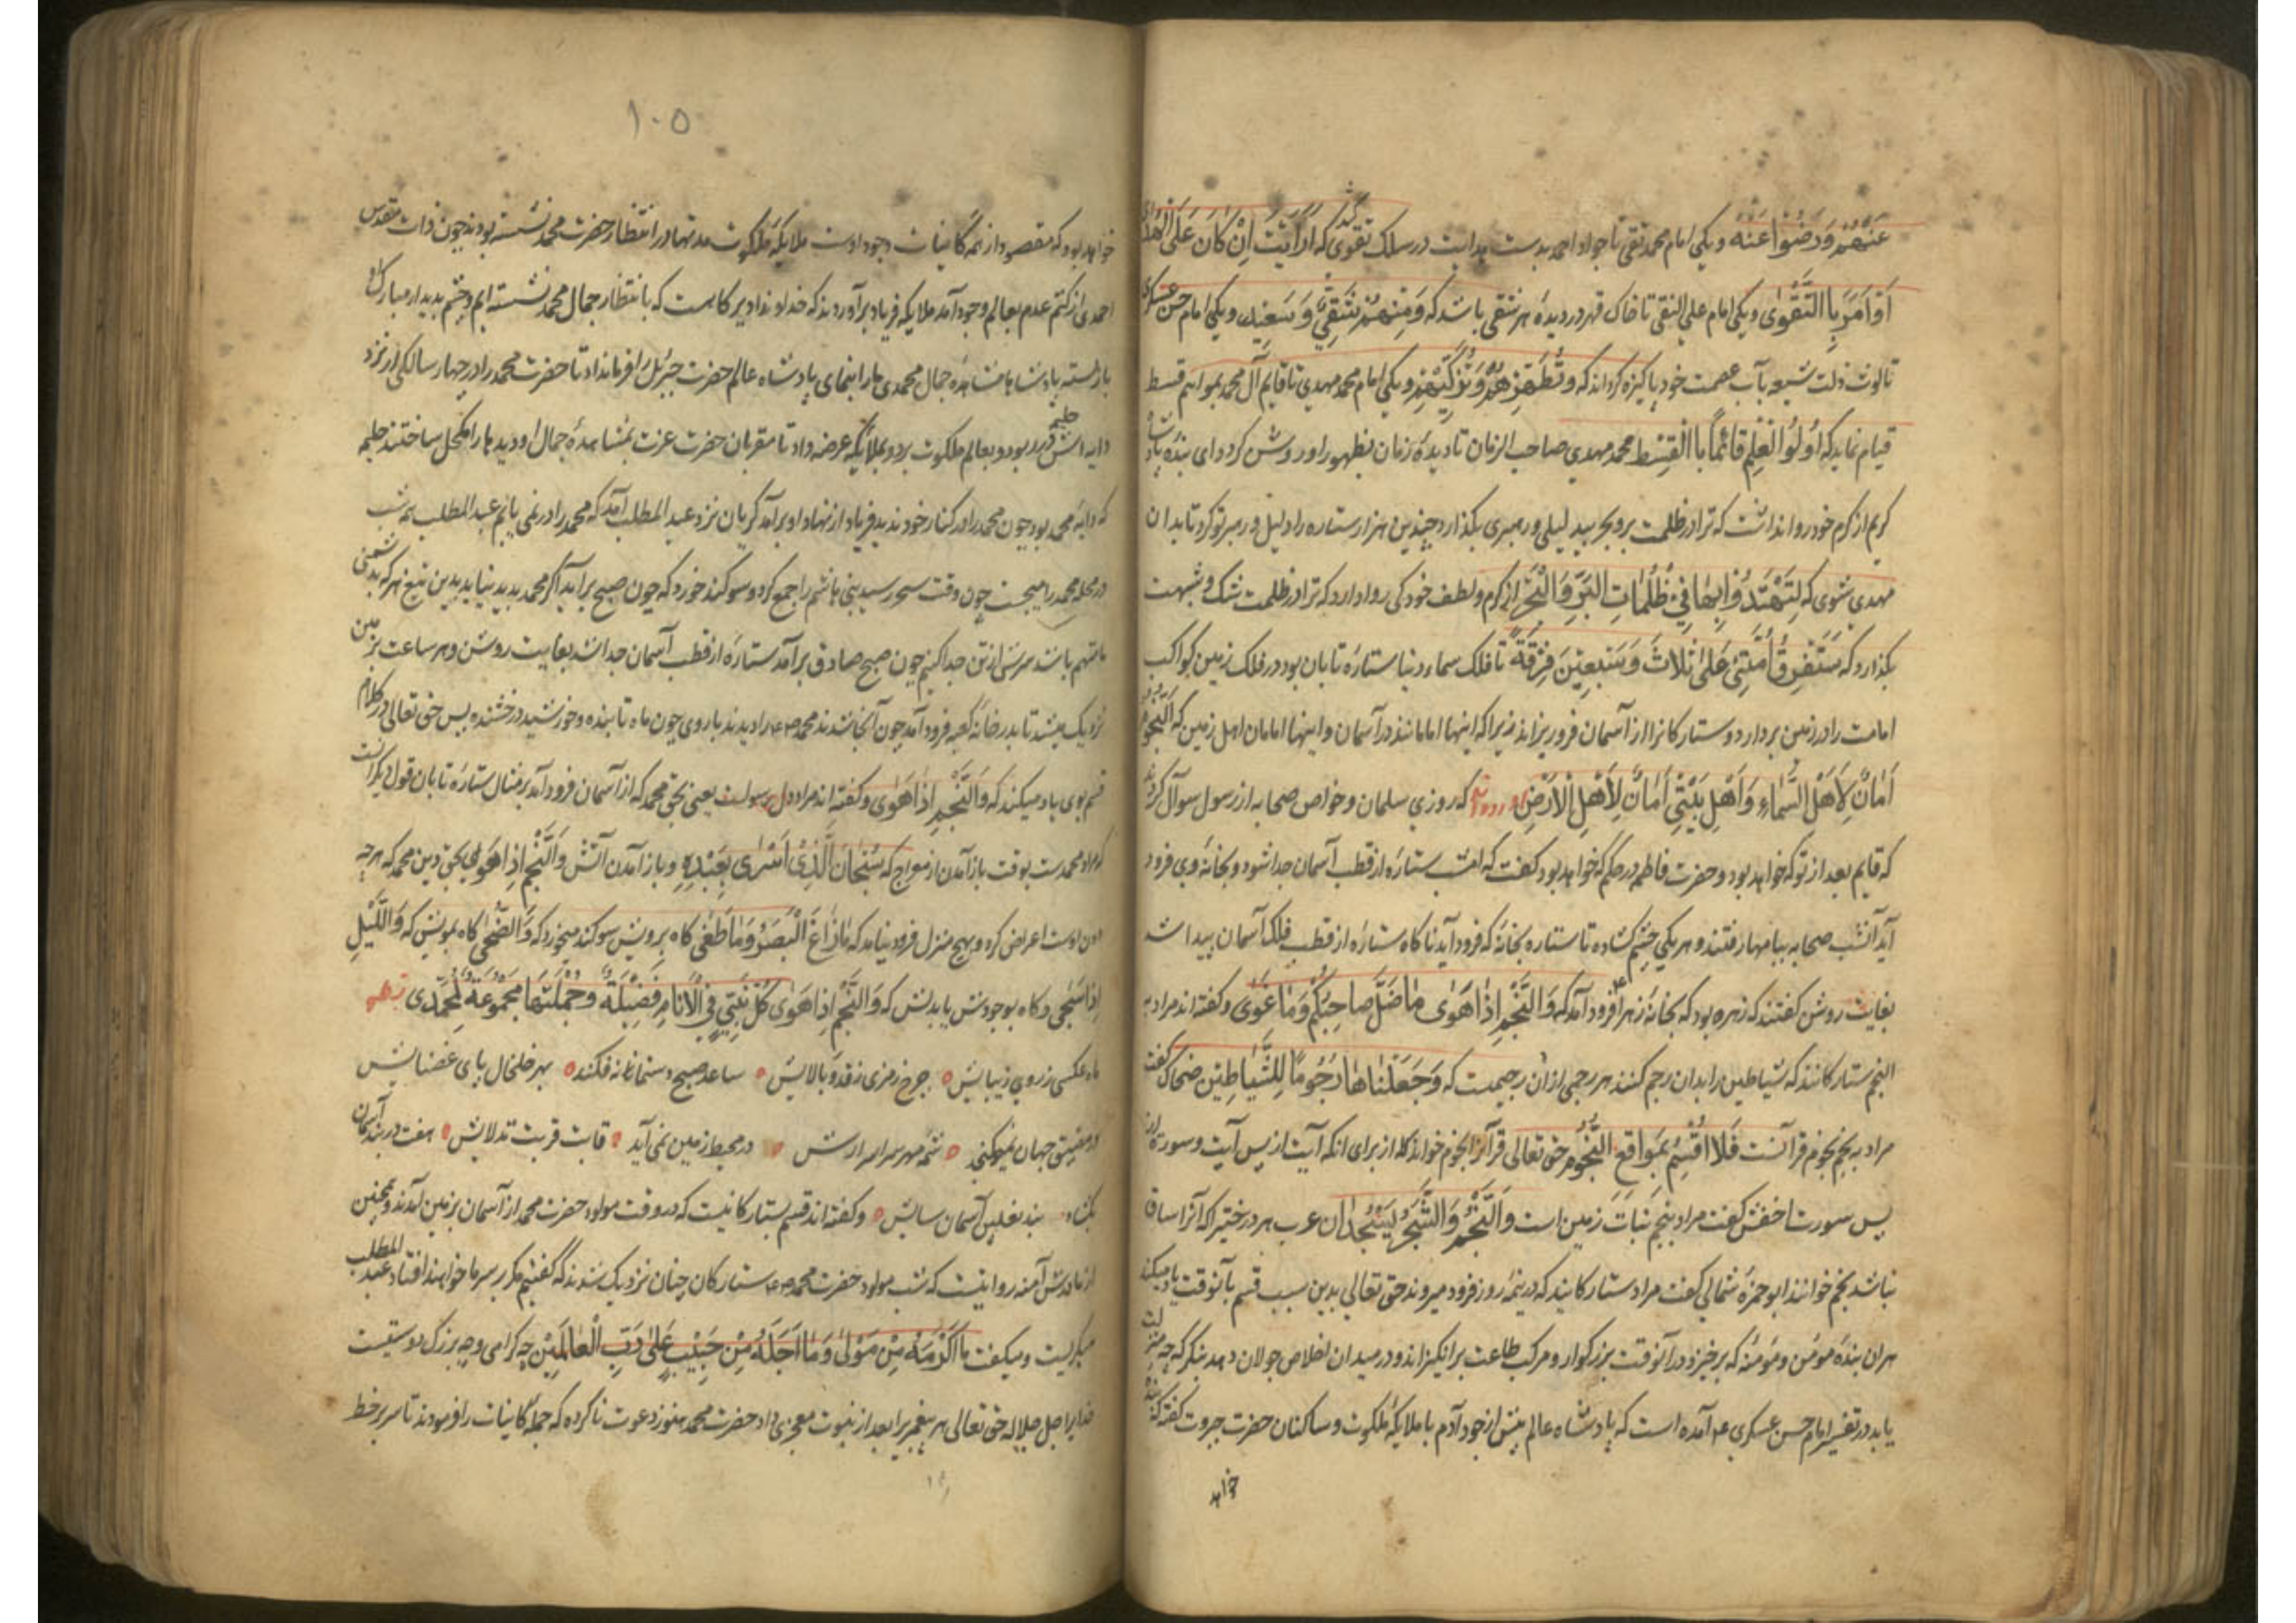 عَنْهُمْ وَرَضُوا عَنْهُ ویکی امام محمد تقی تا جواد احمد بدست هدایت در سلک تقوی کشد که اَرَاَیْتَ اِنْ کَانَ عَلَی الْهُدٰی
اَوْ اَمَرَ بِالتَّقْوٰی ویکی امام علی النقی تا خاک قهر در دیدهٔ هر شقی باشد که وَمِنْهُمْ شَقِیٌّ وَسَعِیدٌ ویکی امام حسن عسکری
تا لوث ذلت شیعه بآب عصمت خود پاکیزه کرداند که وَتُطَهِّرُهُمْ وَتُزَکِّیْهِمْ ویکی امام محمد مهدی تا قایم آل محمد بمراسم قسط
قیام نماید که اُولُو الْعِلْمِ قَائِمًا بِالْقِسْطِ محمد مهدی صاحب الزمان تا دیدهٔ زمان بظهور او روشن کردد ای بنده پادشاه
کریم از کرم خود روا نداشت که ترا در ظلمت بر و بحر بی دلیلی و رهبری بکذارد چندین هزار ستاره را دلیل و رهبر تو کرد تا بدان
مهدی شوی که لِتَهْتَدُوا بِهَا فِی ظُلُمَاتِ الْبَرِّ وَالْبَحْرِ از کرم و لطف خود کی روا دارد که ترا در ظلمت شک و شبهت
بکذارد که سَتَفْرِقُ اُمَّتِی عَلٰی ثَلَاثَ وَسَبْعِیْنَ فِرْقَةً تا فلک سماء دنیا ستاره تابان بود در فلک زمین کواکب
امامت را در زمین بردارد و ستارکانرا از آسمان فرو ریزاند زیرا که اینها امامانند در آسمان و اینها امامان اهل زمین که اَلنُّجُومُ
اَمَانٌ لِاَهْلِ السَّمَاءِ وَاَهْلِ بَیْتِی اَمَانٌ لِاَهْلِ الْاَرْضِ که روزی سلمان و خواص صحابه از رسول سوال کردند
که قایم بعد از تو که خواهد بود و حضرت فاطمه در حکم که خواهد بود کفت که امشب ستاره از قطب آسمان جدا شود و بخانهٔ وی فرود
آید آنشب صحابه ببامها رفتند و هر یکی چشم کشاده تا ستاره بخانهٔ که فرود آید ناکاه ستاره از قطب فلک آسمان پیدا شد
بغایت روشن کفتند که زهره بود که بخانهٔ زهرا فرود آمد که وَالنَّجْمِ اِذَا هَوٰی مَا ضَلَّ صَاحِبُکُمْ وَمَا غَوٰی و کفته اند مراد به
النجم ستارکانند که شیاطین را بدان رجم کنند هر رجمی از آن رجیمست که وَجَعَلْنَاهَا رُجُومًا لِلشَّیَاطِیْنِ ضحاک کفت
مراد به نجم نجوم قرآنست فَلَا اُقْسِمُ بِمَوَاقِعِ النُّجُومِ حق تعالی قرآنرا نجوم خواند کاه از برای انکه آیت از پس آیت و سورت از
پس سورت اخفش کفت مراد بنجم نبات زمین است وَالنَّجْمُ وَالشَّجَرُ یَسْجُدَانِ عرب هر درختیرا که آنرا ساق
نباشد نجم خوانند ابو حمزه ثمالی کفت مراد ستارکانند که در نیمهٔ روز فرود میروند حق تعالی بدین سبب قسم بآنوقت یاد میکند
هر آن بندهٔ مومن و مومنه که برخیزد در آنوقت بزرکوار و مرکب طاعت برانکیزاند و در میدان اخلاص جولان دهد بنکر که چه منزلت
یابد در تفسیر امام حسن عسکری ع آمده است که پادشاه عالم پیش از وجود آدم با ملایکهٔ ملکوت و ساکنان حضرت جبروت کفته که بندهٔ
خواهد
۱۰۵
خواهد بود که مقصود از همه کاینات وجود اوست ملایکهٔ ملکوت مدتها در انتظار حضرت محمد نشسته بودند چون ذات مقدس
احمدی از کتم عدم بعالم وجود آمد ملایکه فریاد برآوردند که خداوندا دیر کاهست که بانتظار جمال محمد نشسته ایم و چشم بدیدار مبارک او
باز بسته پادشاها مشاهدهٔ جمال محمدی ما را بنمای پادشاه عالم حضرت جبرئیل را فرمانداد تا حضرت محمد را در چهار سالکی از نزد
دایه اش حلیمه در ربود و بعالم ملکوت برد و بملایکه عرضه داد تا مقربان حضرت عزت بمشاهدهٔ جمال او دیدها را مکحل ساختند حلیمه
که دایهٔ محمد بود چون محمد را در کنار خود ندید فریاد از نهاد او برآمد کریان نزد عبد المطلب آمد که محمد را در نمی یابم عبد المطلب همه شب
در مکه محمد را میجست چون وقت سحر رسید بنی هاشم را جمع کرد و سوکند خورد که چون صبح برآید اکر محمد پدید نیاید بدین تیغ هر که بدشمنی
ما متهم باشد سرش از تن جدا کنم چون صبح صادق برآمد ستاره از قطب آسمان جدا شد بغایت روشن و هر ساعت بزمین
نزدیک میشد تا بدر خانهٔ کعبه فرود آمد چون آنجا شدند محمد را دیدند با روی چون ماه تابنده و خورشید درخشنده پس حق تعالی در کلام
قسم بوی یاد میکند که وَالنَّجْمِ اِذَا هَوٰی و کفته اند مراد دل رسولست یعنی بحق محمد که از آسمان فرود آمد بر مثال ستاره تابان قول دیکر آنست
که مراد محمدست بوقت باز آمدن از معراج که سُبْحَانَ الَّذِی اَسْرٰی بِعَبْدِهِ و باز آمدن آنش وَالنَّجْمِ اِذَا هَوٰی بحق دین محمد که هر چه
دون اوست اعراض کرد و بهیچ منزل فرود نیامد که مَا زَاغَ الْبَصَرُ وَمَا طَغٰی کاه برویش سوکند میخورد که وَالضُّحٰی کاه بمویش که وَاللَّیْلِ
اِذَا سَجٰی و کاه بوجودش یابدنش که وَالنَّجْمِ اِذَا هَوٰی کُلُّ نَبِیٍّ فِی الْاَنَامِ فَضِیْلَةٌ وَجُمْلَتُهَا مَجْمُوعَةٌ لِمُحَمَّدِی
ماه عکسی ز روی زیبایش چرخ رمزی ز قد و بالایش ساعد صبح دستمانه فکند بهر خلخال پای
در مضیق جهان نمیکنجد در محیط زمین نمی آید قابت قربت تدلایش هفت در بند آسمان
بکشاد بند نعلین آسمان سایش و کفته اند قسم بستارکانیست که در وقت مولود حضرت محمد از آسمان بزمین آمدند و همچنین
از مادرش آمنه روایتست که شب مولود حضرت محمد ستارکان چنان نزدیک شدند که کفتیم مکر بر سر ما خواهند افتاد عبد المطلب
میکریست و میکفت مَا اَکْرَمَهُ مِنْ مَوْلٰی وَمَا اَجَلَّهُ مِنْ حَبِیْبٍ عَلٰی رَبِّ الْعَالَمِیْنَ چه کرامی و چه بزرک دوستیست
خدایرا جل جلاله حق تعالی هر پیغمبر را بعد از نبوت معجزی داد حضرت محمد هنوز دعوت ناکرده که جملهٔ کاینات را فرمودند تا سر بر خط